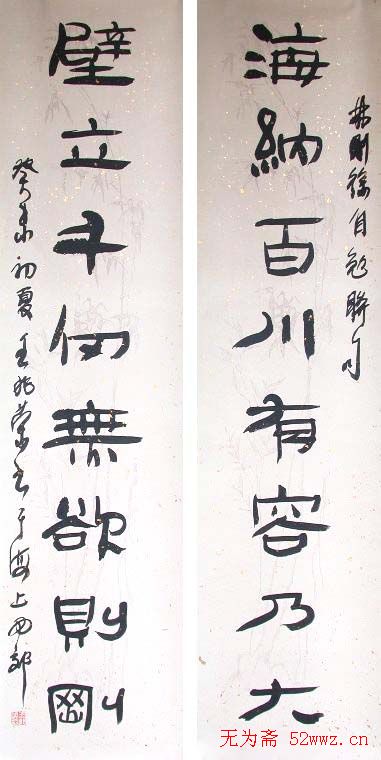 林則徐自勉聯句
海納百川有容乃大
壁立千仞無欲則剛
癸未初夏王兆榮书于海上西部
无为斋 52wwz.cn